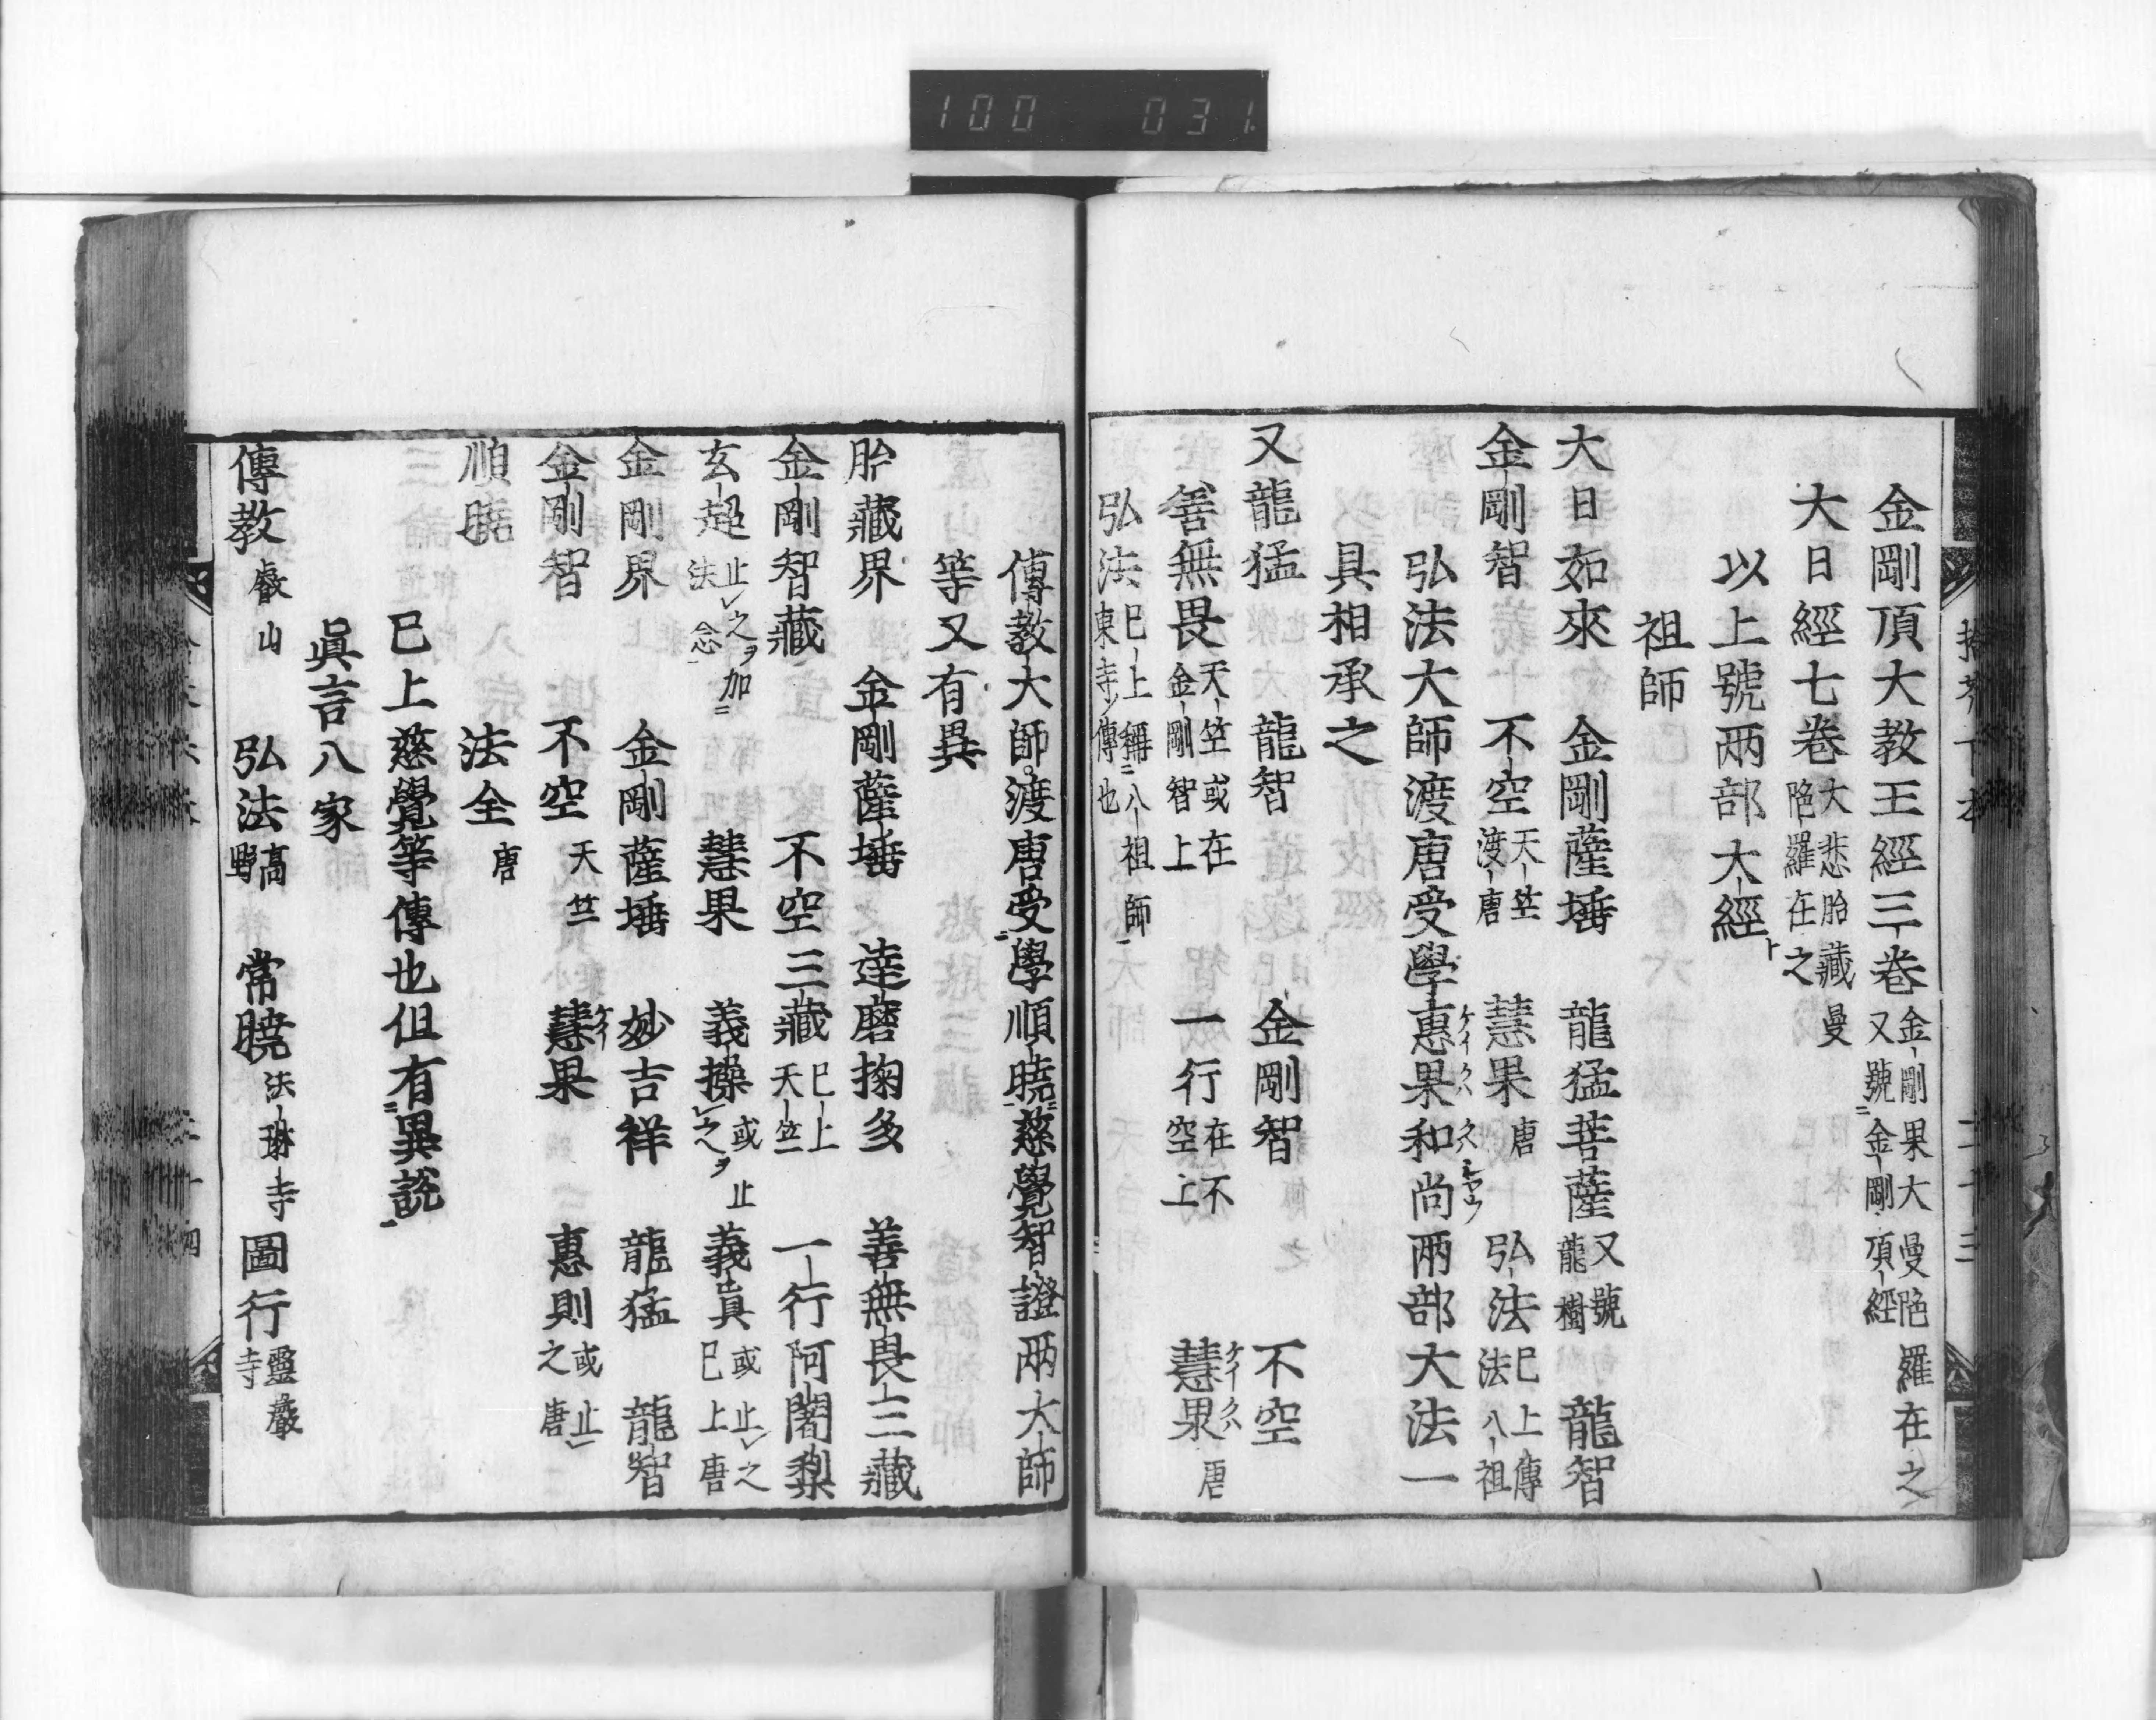 100 031
金剛頂大教王經三卷 金剛果大曼陀羅在之 又號金剛頂經
大日經七卷 大悲胎藏曼陀羅在之
以上號兩部大經
祖師
大日如來 金剛薩埵 龍猛菩薩 又號龍樹 龍智
金剛智 不空 天竺渡唐 慧果 唐 弘法 巳上傳法八祖
弘法大師渡唐受學惠果和尚兩部大法一
具相承之
又龍猛 龍智 金剛智 不空
善無畏 天竺或在金剛智上 一行 在不空上 慧果 唐
弘法 巳上稱八祖師 東寺傳也
傳教大師渡唐受學順曉慈覺智證兩大師
等又有異
胎藏界 金剛薩埵 達磨掬多 善無畏三藏
金剛智藏 不空三藏 巳上天竺 一行阿闍梨
玄超 止之ヲ加法念 慧果 義操 或止之ヲ 義眞 或止之 巳上唐
金剛界 金剛薩埵 妙吉祥 龍猛 龍智
金剛智 不空 天竺 慧果 惠則 或止之 唐
順曉 法全 唐
巳上慈覺等傳也但有異説
眞言八家
傳教 叡山 弘法 高野 常曉 法琳寺 圖行 靈巖寺